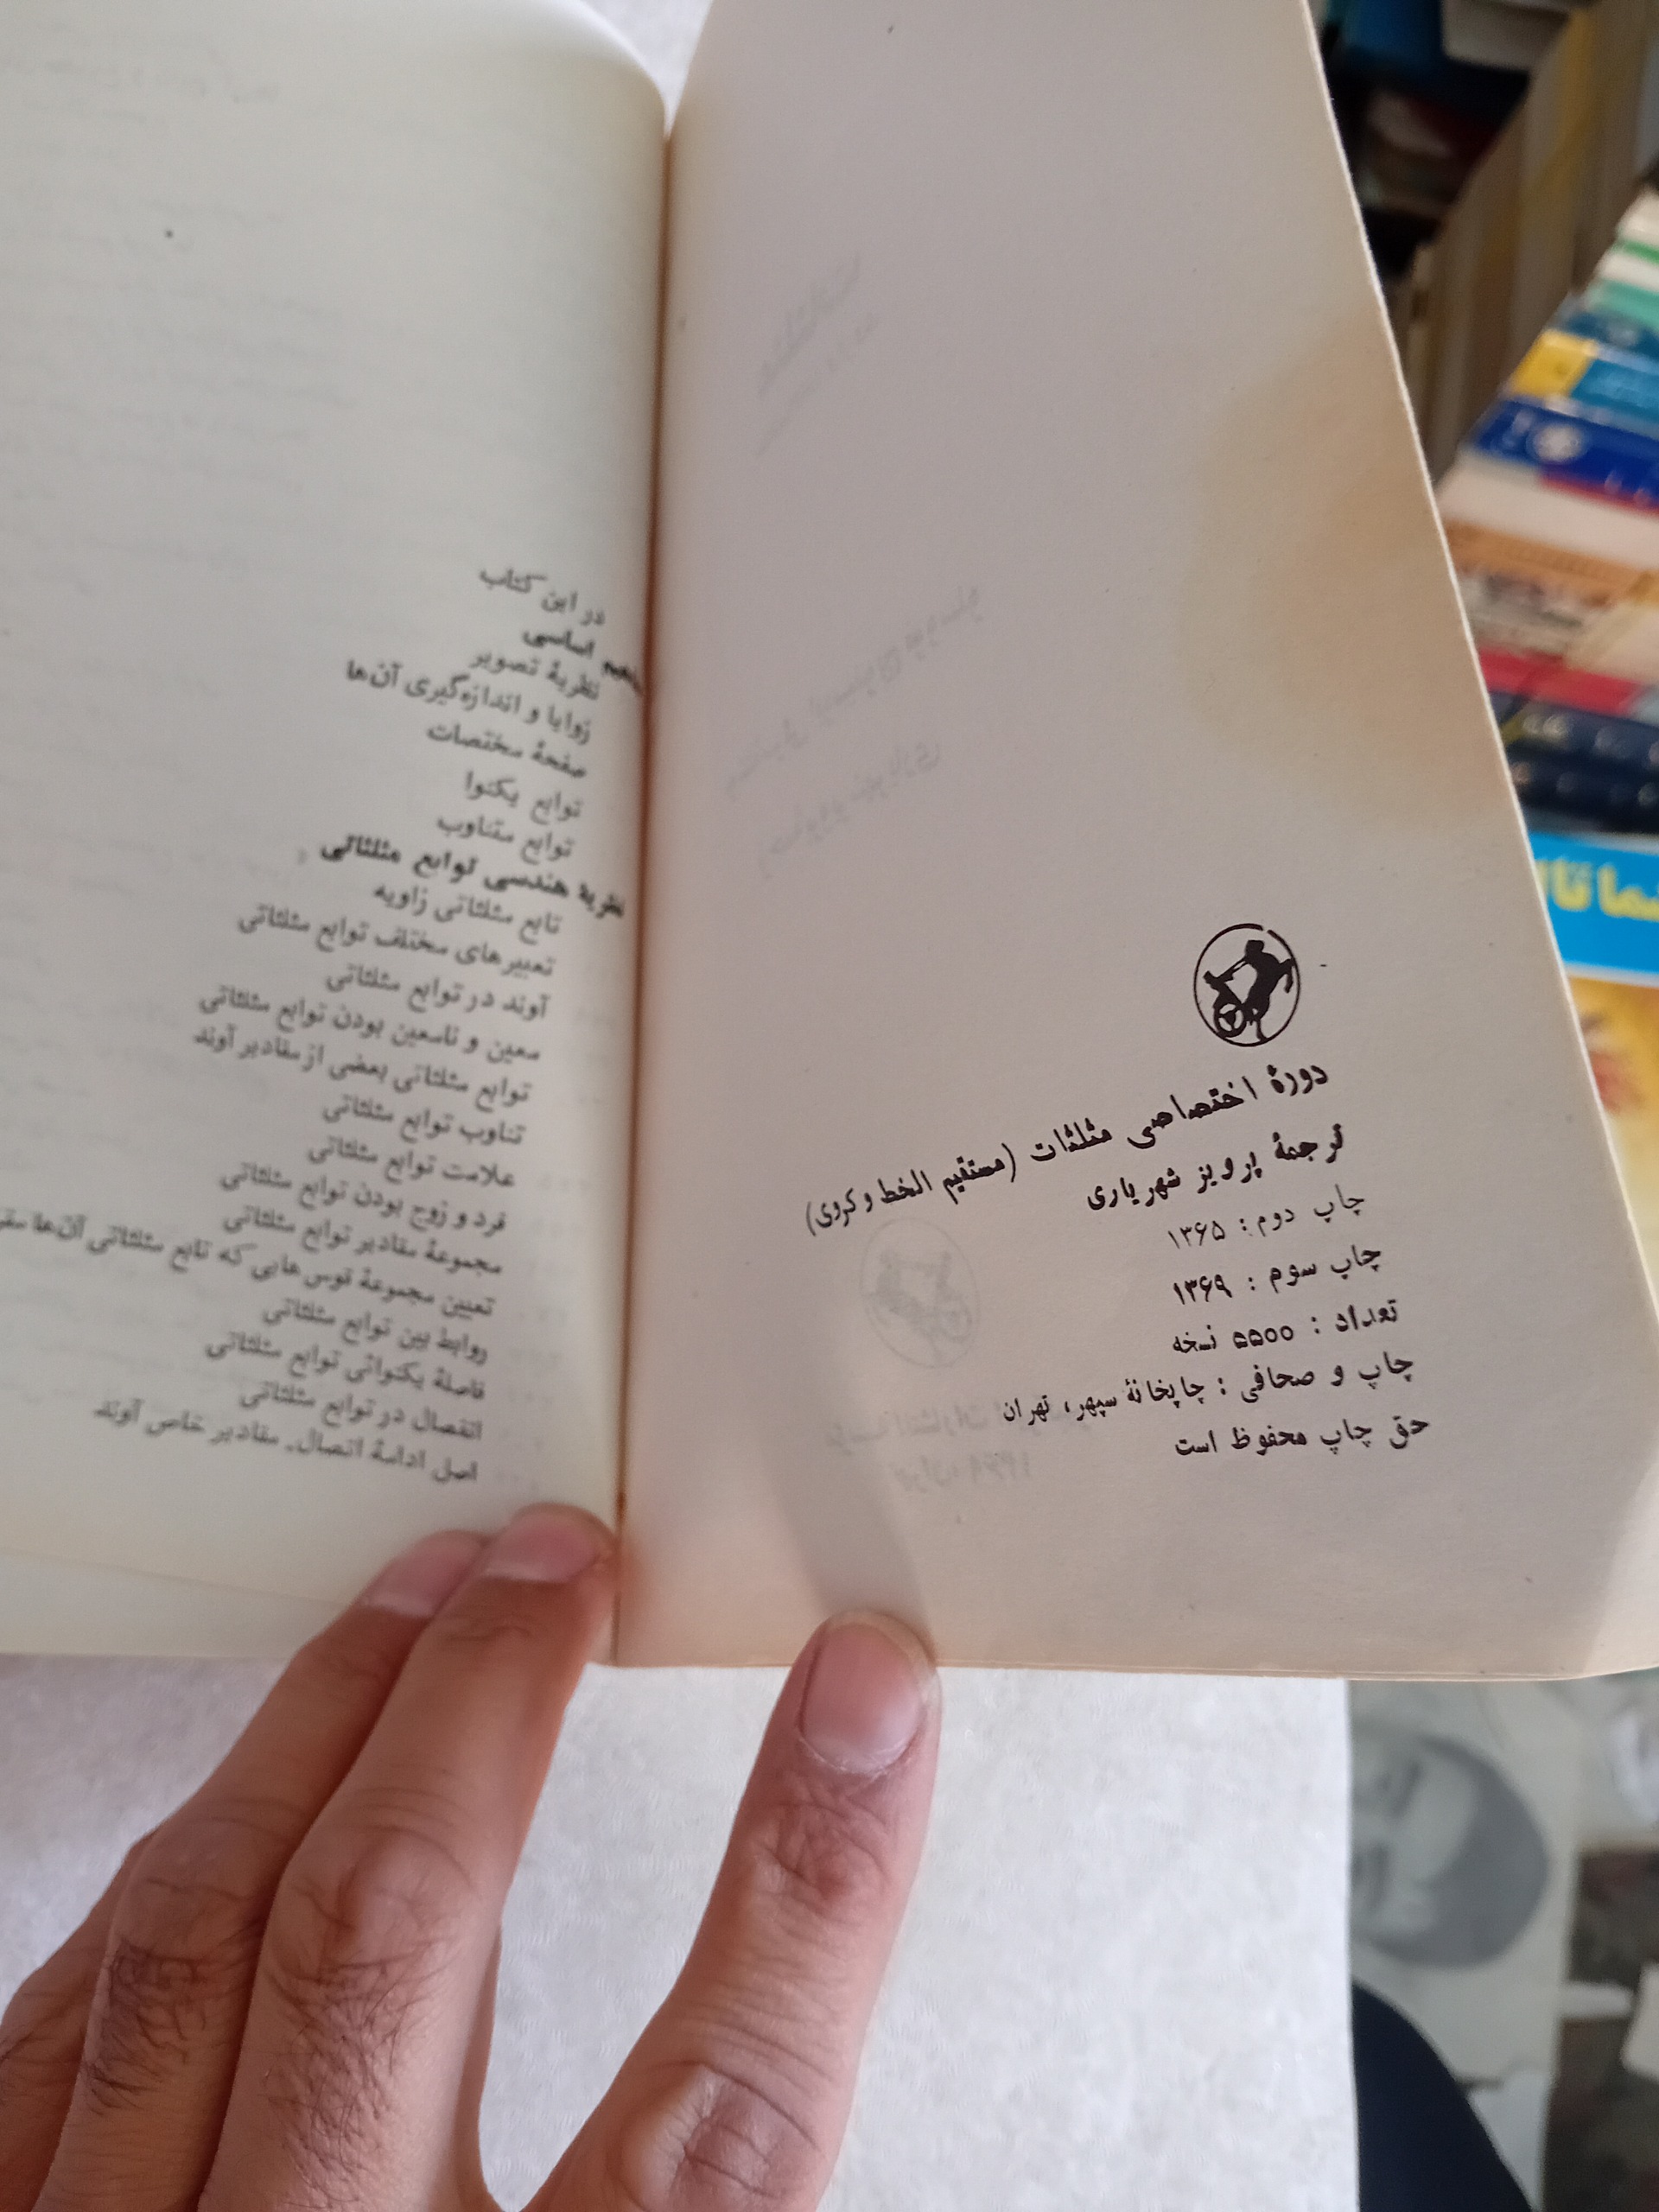 دورۀ اختصاصی مثلثات (مستقیم الخط و کروی)
ترجمۀ پرویز شهریاری
چاپ دوم: ۱۳۶۵
چاپ سوم : ۱۳۶۹
تعداد : ۵۵۰۰ نسخه
چاپ و صحافی : چاپخانۀ سپهر، تهران
حق چاپ محفوظ است
در این کتاب
اساسی
نظریۀ تصویر
زوایا و اندازه‌گیری آن‌ها
صفحۀ مختصات
توابع یکنوا
توابع متناوب
نظریۀ هندسی توابع مثلثاتی
تابع مثلثاتی زاویه
تعبیرهای مختلف توابع مثلثاتی
آوند در توابع مثلثاتی
معین و نامعین بودن توابع مثلثاتی
توابع مثلثاتی بعضی از مقادیر آوند
تناوب توابع مثلثاتی
علامت توابع مثلثاتی
فرد و زوج بودن توابع مثلثاتی
مجموعۀ مقادیر توابع مثلثاتی
تعیین مجموعۀ قوس‌هایی که تابع مثلثاتی آن‌ها
روابط بین توابع مثلثاتی
فاصلۀ یکنوائی توابع مثلثاتی
اتصال در توابع مثلثاتی
اصل ادامۀ اتصال. مقادیر خاص آوند